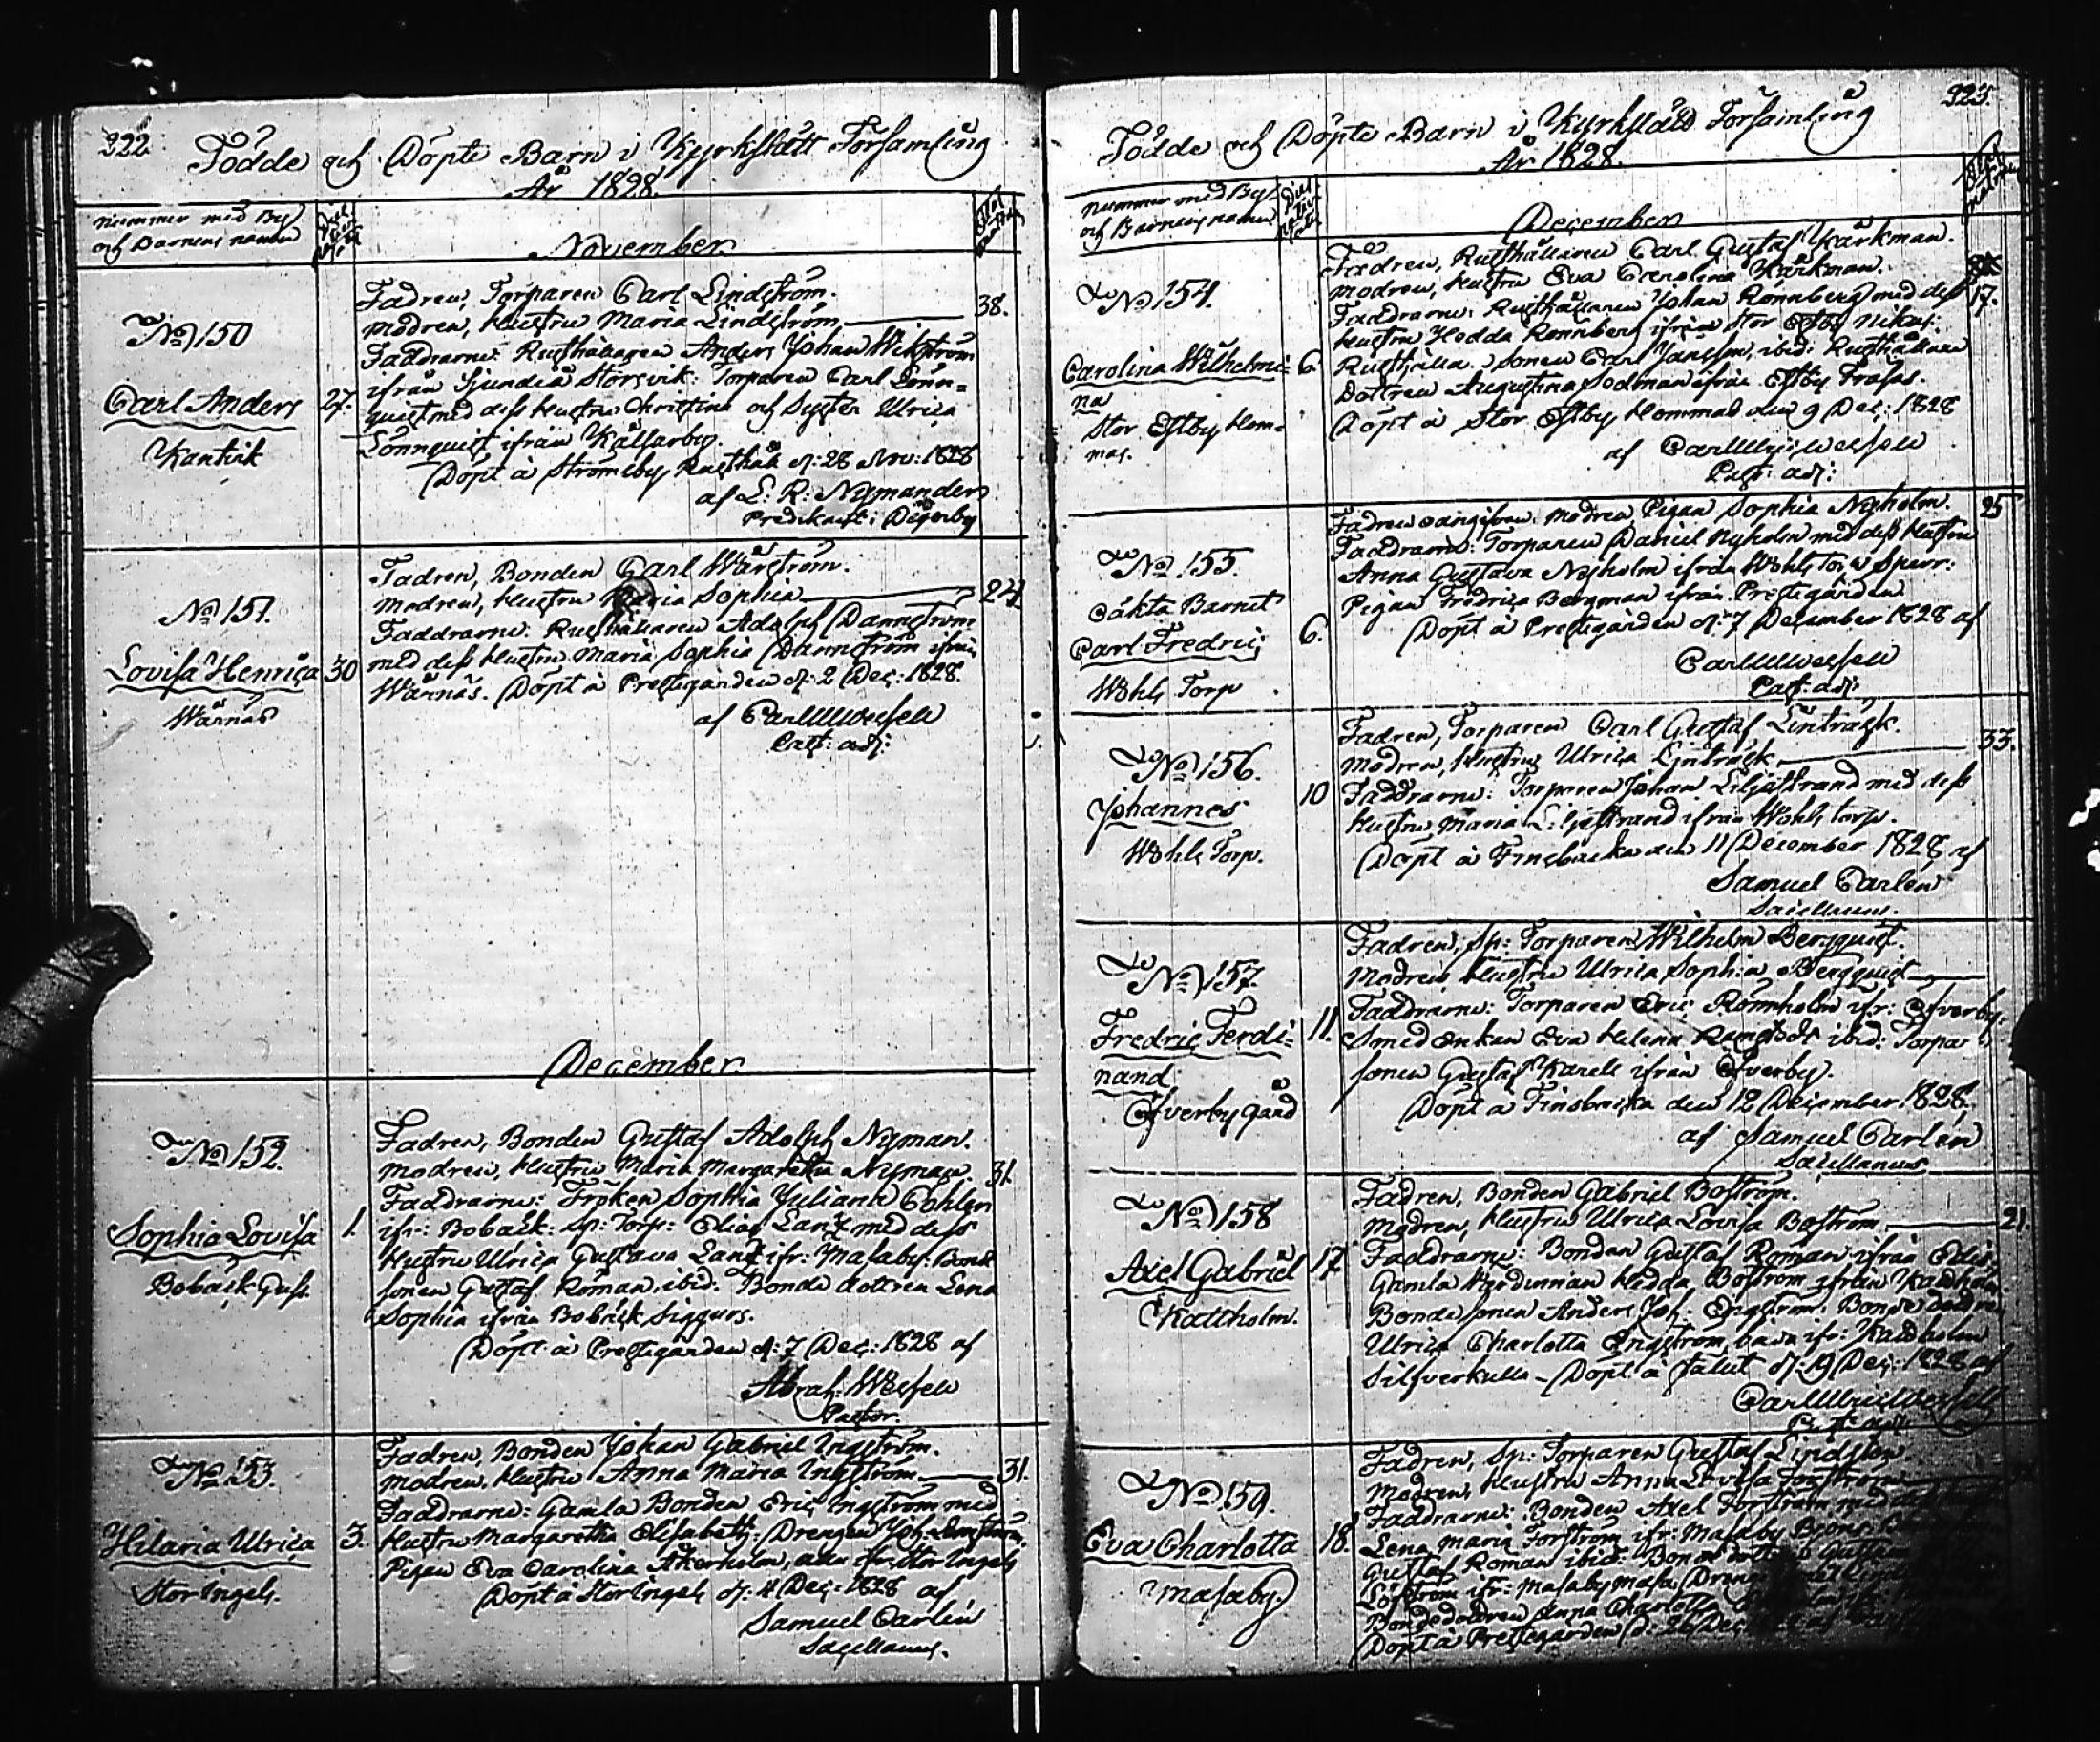 222.
Födde och Döpte Barn i Kyrkslätt Församling
År 1828.
Nummer med By
och Barnens namn
November
No 150
Carl Anders
Kantvik
27.
Fadren, Torparen Carl Lindström.
Modren, Hustru Maria Lindström
38.
Faddrarne: Rusthållaren Anders Johan Wikström
ifrån Sjundeå Storsvik: Torparen Carl Lönn=
quist med dess Hustru Christina och Syster Ulrica
Lönnquist ifrån Kälfarby.
Döpt å Strömsby Rusthåll d: 28 Nov: 1828
af L: R: Nymander
Predikant i Degerby
No 151.
Lovisa Henrica
Wärnäs
30
Fadren, Bonden Carl Wärström.
Modren, Hustru Maria Sophia
24
Faddrarne: Rusthållaren Adolph Dannström
med dess Hustru Maria Sophia Dannström ifrån
Wärnäs. Döpt å Prestgården d: 2 Dec: 1828.
af Carl Wessell
Past: adj:
December
No 152.
Sophia Lovisa
Bobäck Guss.
1.
Fadren, Bonden Gustaf Adolph Nyman.
Modren, Hustru Maria Margaretha Nyman.
31.
Faddrarne: Fröken Sophia Juliana Cöhler
ifr: Bobäck: Sp: Torp: Elias Lantz med dess
Hustru Ulrica Gustava Lantz ifr: Masaby: Bond
sonen Gustaf Roman, ibid. Bonde dottren Lena
Sophia ifrån Bobäck Siggurs.
Döpt å Prestgården d: 7 Dec: 1828 af
Abrah: Wessell
Pastor.
No 153.
Hilaria Ulrica
Stor Ingels.
3.
Fadren, Bonden Johan Gabriel Ingström.
Modren, Hustru Anna Maria Ingström
31.
Faddrarne: Gamla Bonden Eric Ingström med
Hustru Margaretha Elisabeth: Drengen Joh:
Pigan Eva Carolina Åkerholm, alla ifr: Stor Ingels
Döpt å Stor Ingels d: 4 Dec: 1828 af
Samuel Carlén
Sacellanus.
223.
Födde och Döpte Barn i Kyrkslätt Församling
År 1828.
Nummer med By
och Barnens namn
December
No 154.
Carolina Wilhelmi=
na
Stor Estby Hom=
mas.
6.
Fadren, Rusthållaren Carl Gustaf Kärkman.
Modren, Hustru Eva Carolina Kärkman.
17.
Faddrarne: Rusthållaren Johan Rönnberg med dess
Hustru Hedda Rönnberg ifrån Stor Estby Nikus:
Rusthålla. Sonen Carl Jansson, ibid: Rusthållare
Dottren Augustina Sodman ifrån Estby Frasas.
Döpt å Stor Estby Hommas den 9 Dec: 1828
af Carl Wessell
Past: adj:
No 155.
Oäkta Barnet
Carl Fredric
Wohls Torp
6.
Fadren oangifven: Modren Pigan Sophia Nyholm.
25
Faddrarne: Torparen Daniel Nyholm med dess Hustru
Anna Gustava Nyholm ifrån Wohls Torp Sperr:
Pigan Fredrica Bergman ifrån Prestgården
Döpt å Prestgården d: 7 December 1828 af
Carl Wessell
Past: adj:
No 156.
Johannes
Wohls Torp.
10
Fadren, Torparen Carl Gustaf Linträsk.
Modren, Hustru Ulrica Linträsk
33.
Faddrarne: Torparen Johan Liljestrand med dess
Hustru Maria Liljestrand ifrån Wohls torp.
Döpt å Finsbacka den 11 December 1828 af
Samuel Carlén
Sacellanus.
No 157.
Fredric Ferdi=
nand
Öfverby gård
11.
Fadren, Sp: Torparen Wilhelm Bergquist.
Modren, Hustru Ulrica Sophia Bergquist
Faddrarne: Torparen Eric Rönnholm ifr: Öfverby:
Smed Enkan Eva Helena Ramstedt ibid: Torpar
sonen Gustaf Karell ifrån Öfverby.
Döpt å Finsbacka den 12 December 1828.
af Samuel Carlén
Sacellanus
No 158
Axel Gabriel
Kattholm.
17
Fadren, Bonden Gabriel Boström.
Modren, Hustru Ulrica Lovisa Boström
21.
Faddrarne: Bonden Gustaf Roman, ifrån Edis,
Gamla Värdinnan Hedda Boström ifrån Kattholm.
Bondesonen Anders Joh: Engström: Bonde dottren
Ulrica Charlotta Engström, båda ifr: Kattholm
Silfverkulla. Döpt å stället d: 19 Dec: 1828 af
Carl Wessell
Past: adj:
No 159.
Eva Charlotta
Masaby
18.
Fadren, Sp: Torparen Gustaf Lindsten.
Modren, Hustru Anna Lovisa Forström
Faddrarne: Bonden Axel Forström med
Lena Maria Forström ifr: Masaby Brons
Gustaf Roman ibid: Bonde
Löfström ifr: Masaby Masas
Bondedottren Anna Charlotta
Döpt å Prestgården d: 26 Dec